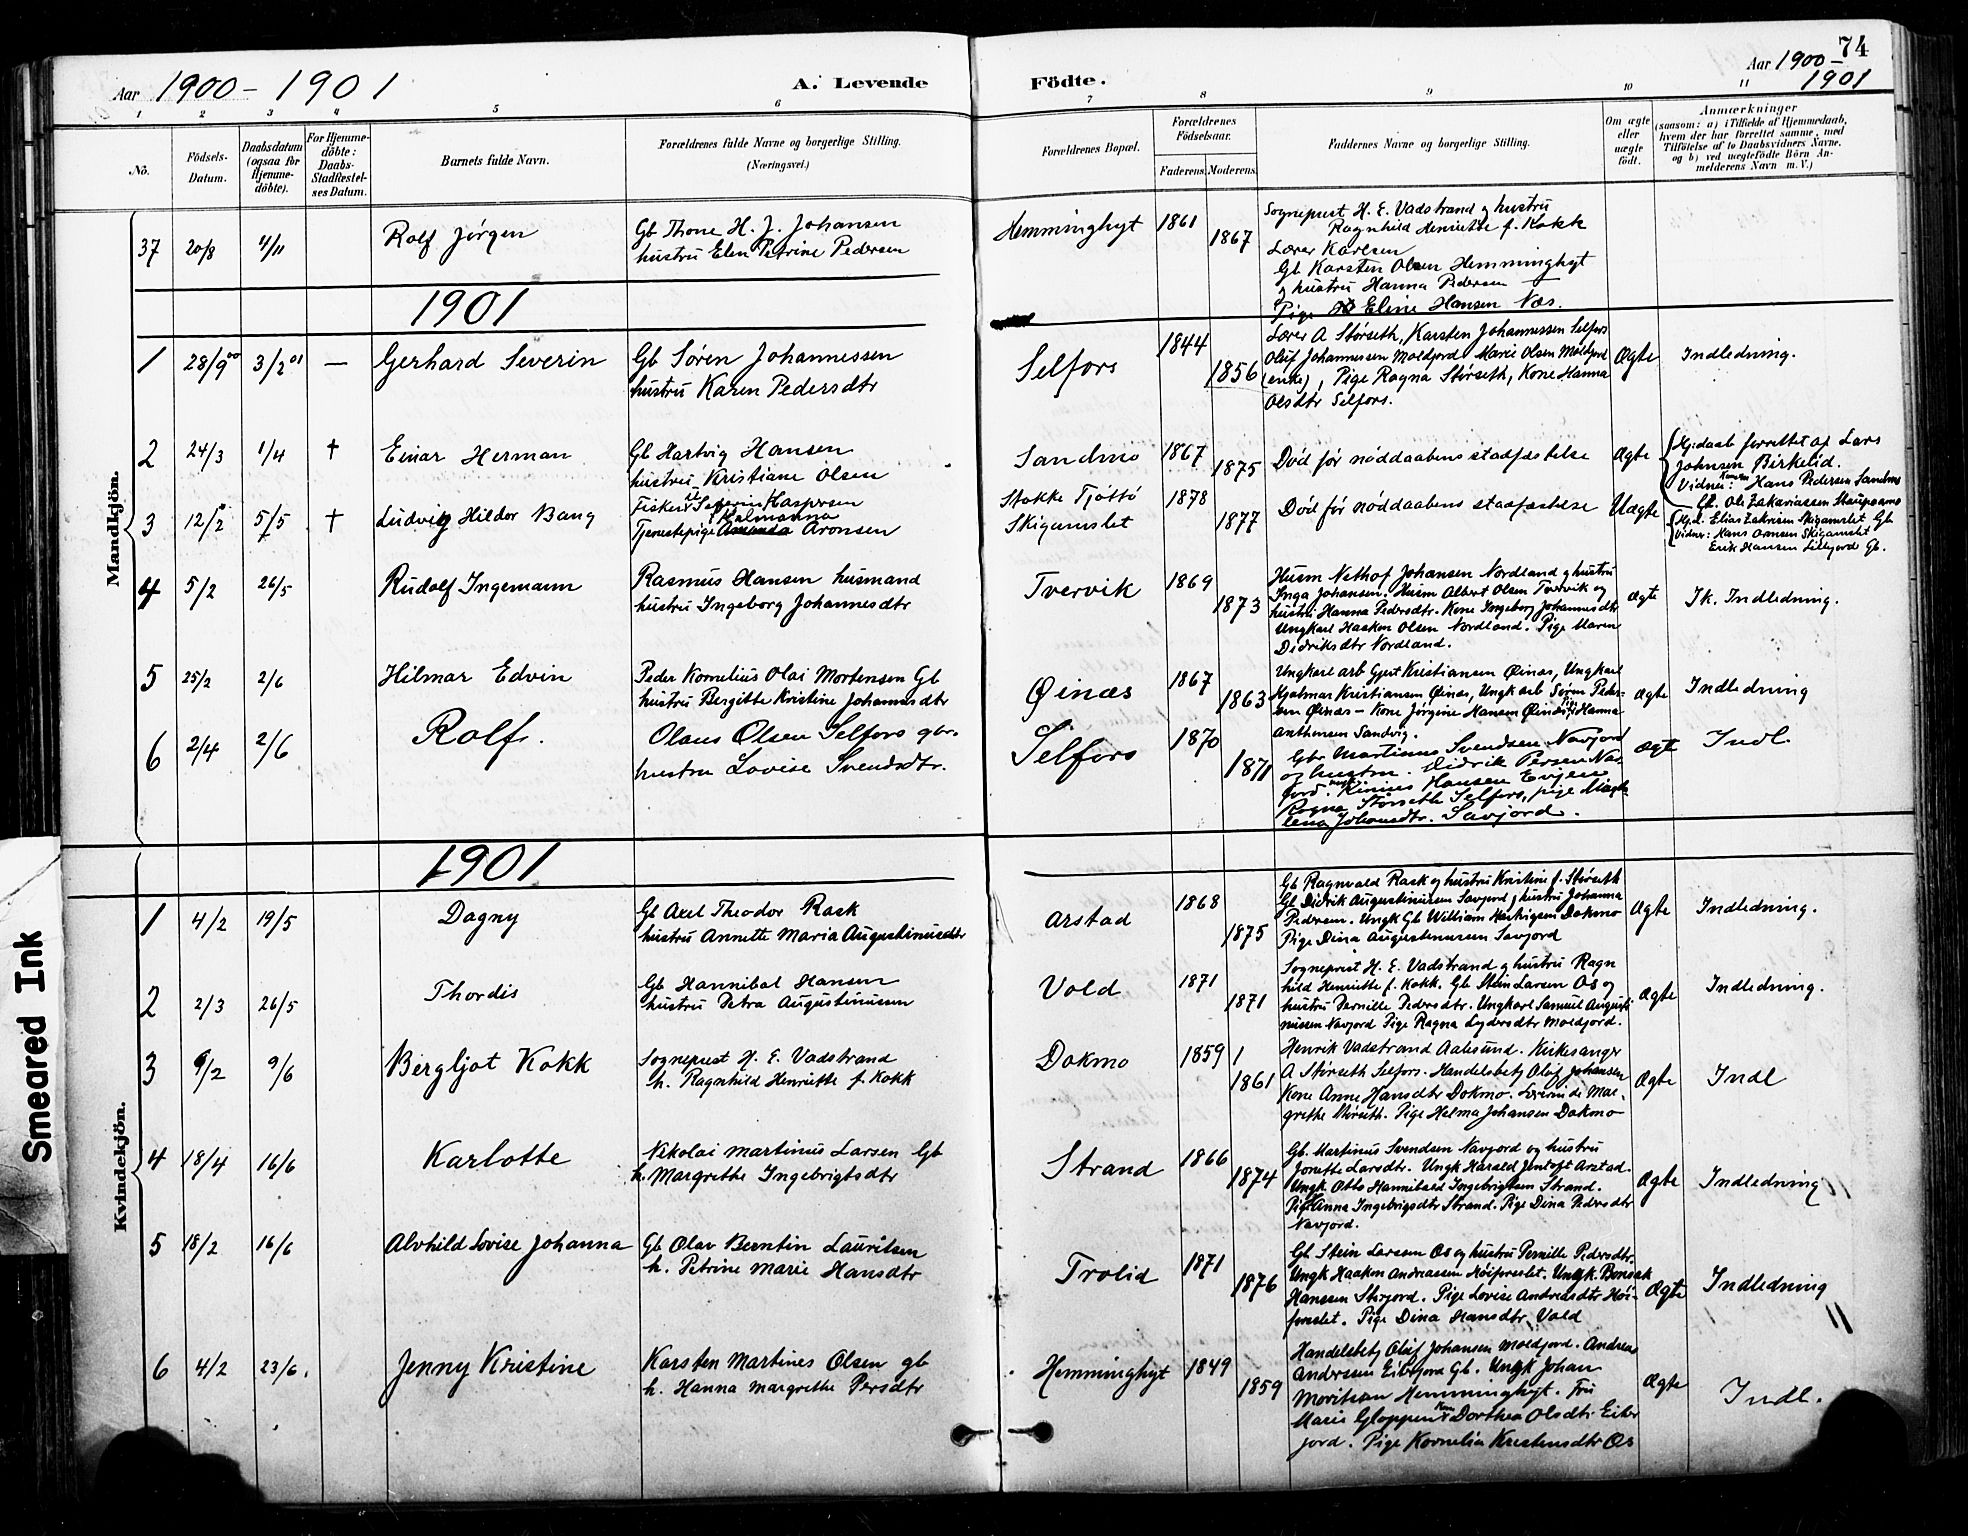 74
Aar 1900 - 1901
A. Levende Födte.
Aar 1900 - 1901
1 2 3 4 5 6 7 8 9 10 11
No.
Födsels-
Datum.
Daabsdatum
(ogsaa for
Hjemme-
döbte).
For Hjemme-
döbte:
Daabs-
Stadfæstel-
ses Datum.
Barnets fulde Navn.
Forældrenes fulde Navne og borgerlige Stilling.
(Næringsvei.)
Forældrenes Bopæl.
Forældrenes
Födselsaar.
Faderens. Moderens.
Faddernes Navne og borgerlige Stilling.
Om ægte
eller
uægte
födt.
Anmærkninger
(saasom: a) i Tilfælde af Hjemmedaab,
hvem der har forrettet samme, med
Tilföielse af to Daabsvidners Navne,
og b) ved uægtefödte Börn An-
melderens Navn m. V.)
Mandkjön.
37 20/8 4/11 Rolf Jørgen
Gb Thone H. J. Johansen
hustru Elen Petrine Pedersen
Hemminghyt 1861 1867
Sogneprest H. E. Vadstrand og hustru
Ragnhild Henriette f. Kokk
Lærer Karlsen
Gb Karsten Olsen Hemminghyt
og hustru Hanna Pedersen
Pige Eline Hansen Næs.
1901
1 28/9 00 3/2 01 — Gerhard Severin
Gb Søren Johannessen
hustru Karen Pedersdtr
Selfors 1844 1856
Lærer A Størseth, Karsten Johannessen Selfors
Oluf Johannessen Moldjord Marie Olsen Moldjord
(enke), Pige Ragna Størseth, Kone Hanna
Olsdtr Selfors.
Ægte Indledning.
2 24/3 1/4 † Einar Herman
Gb Hartvig Hansen
hustru Kristiane Olsen
Sandmo 1867 1875
Død før nøddaabens stadfæstelse
Ægte
Hj.daab forrettet af Lars
Johnsen Birkelid.
Vidner: Hans Pedersen Sandmo
Ole Zakariassen
3 12/2 5/5 † Ludvig Hildor Bang
Fisker Severin Kaspersen
Tjenestepige Kalmanna Aronsen
Stokke Tjøttø
Skigamslet
1878 1877
Død før nøddaabens stadfæstelse
Uægte
Hj.d. Elias Zakrisen Skigamslet Gb
Vidner: Hans Arnsen Skigamslet
Erik Hansen Lillejord Gb.
4 5/2 26/5 Rudolf Ingemann
Rasmus Hansen husmand
hustru Ingeborg Johannesdtr
Tvervik 1869 1873
Husm Nethof Johansen Nordland og hustru
Inga Johansen. Husm Albert Olsen Tvervik og
hustru Hanna Pedersdtr. Kone Ingeborg Johannesdtr
Ungkarl Haakon Olsen Nordland. Pige Maren
Didriksdtr Nordland.
Ægte Ik. Indledning.
5 25/2 2/6 Hilmar Edvin
Peder Kornelius Olai Mortensen Gb
hustru Bergitte Kristine Johannesdtr
Øinæs 1867 1863
Ungkarl arb Gjert Kristiansen Øinæs, Ungkarl
Hjalmar Kristiansen Øinæs, Ungk arb Søren Peder-
sen Øinæs – Kone Jørgine Hansen Øinæs, Pige Hanna
Anthonsen Sandvig.
Ægte Indledning
6 2/4 2/6 Rolf.
Olaus Olsen Selfors gbr.
hustru Lovise Svendsdtr.
Selfors 1870 1871
Gbr Martinus Svendsen Navjord
og hustru. Didrik Persen Nav-
jord. Kinius Hansen Evjen
Ragna Størseth Selfors, pige Magda-
lena Johansdtr. Savjord.
ægte Indl.
Kvindekjön.
1901
1 4/2 19/5 Dagny
Gb Axel Theodor Rask
hustru Annette Maria Augustinusdtr
Arstad 1868 1875
Gb Ragnvald Rask og hustru Kristine f. Størseth
Gb Didrik Augustinussen Savjord, hustru Johanna
Pedersen. Ungk Gb William Hartvigsen Dokmo
Pige Dina Augustinussen Savjord
Ægte Indledning.
2 2/3 26/5 Thordis
Gb Hannibal Hansen
hustru Petra Augustinussen
Vold 1871 1871
Sogneprest H. E. Vadstrand og hustru Ragn
hild Henriette f. Kokk. Gb Stein Larsen Os og
hustru Pernille Pedersdtr. Ungkarl Samuel Augusti
nussen Navjord Pige Ragna Lydersdtr Moldjord.
Ægte Indledning.
3 9/2 9/6 Bergljot Kokk
Sogneprest H. E. Vadstrand
h. Ragnhild Henriette f. Kokk
Dokmo 1859 1861
Henrik Vadstrand Aalesund. Kirkesanger
A Størseth Selfors. Handelsbetj Oluf Johansen
Kone Anne Hansdtr Dokmo. Lærerinde Mar-
grethe Størseth. Pige Helma Johansen Dokmo
Ægte Indl
4 18/4 16/6 Karlotte
Nikolai Martinus Larsen Gb
h. Margrethe Ingebrigtsdtr
Strand 1866 1874
Gb. Martinus Svendsen Navjord og hustru
Jonette Larsdtr. Ungk Harald Jentoft Arstad.
Ungk. Otto Hannibald Ingebrigtsen Strand.
Pige Anna Ingebrigsdtr Strand. Pige Dina Pedersdtr
Navjord.
Ægte Indledning
5 18/2 16/6 Alvhild Lovise Johanna
Gb Olav Berntin Lauritsen
h. Petrine Marie Hansdtr
Trolid 1871 1876
Gb. Stein Larsen Os og hustru Pernille Pedersdtr.
Ungk Haakon Andreassen Høiforslet. Ungk. Bonsak
Hanssen Storjord. Pige Lovise Andreasdtr Høi-
forslet. Pige Dina Hansdtr Vold
Ægte Indledning
6 4/2 23/6. Jenny Kristine
Karsten Martines Olsen gb
h. Hanna Margrethe Persdtr
Hemminghyt 1849 1859
Handelsbetj Oluf Johansen Moldjord. Andreas
Anderssen Eiterjord Gb. Ungk Johan
Moritsen Hemminghyt. Fru
Marie Gloppen Kone Dorthea Olsdtr Eiter
jord. Pige Kornelia Kristensdtr Os
Ægte Indl.
Smeared Ink